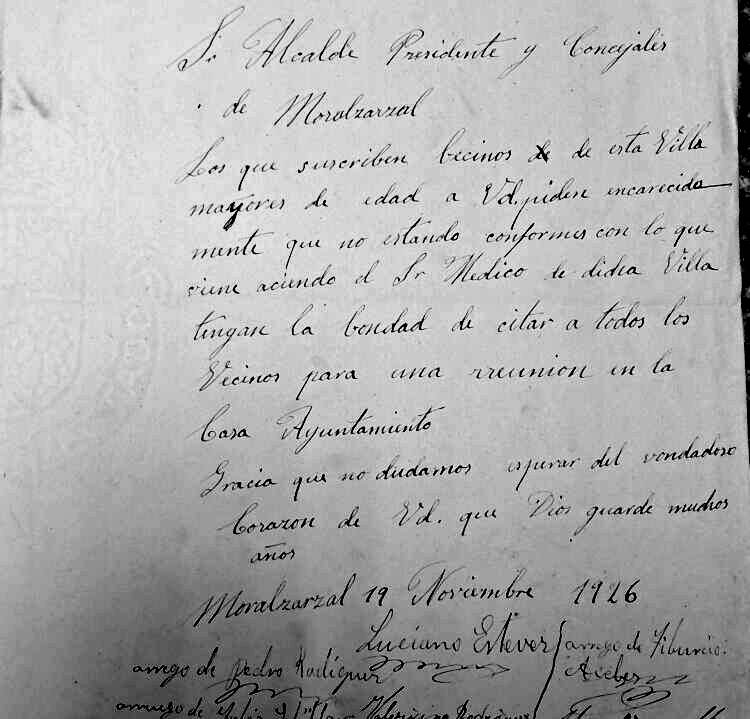 Sr Alcalde Presidente y Concejales
de Moralzarzal
Los que suscriben becinos de de esta Villa
mayores de edad a Vd. piden encarecida
mente que no estando conformes con lo que
viene aciendo el Sr Medico de dicha Villa
tengan la bondad de citar a todos los
Vecinos para una rreunion en la
Casa Ayuntamiento
Gracia que no dudamos esperar del vondadoso
Corazon de Vd. que Dios guarde muchos
años
Moralzarzal 19 Noviembre 1926
Luciano Estevez arruego de Tiburcio
arruego de Pedro Rodiguez
arruego de Valeriano Rodriguez